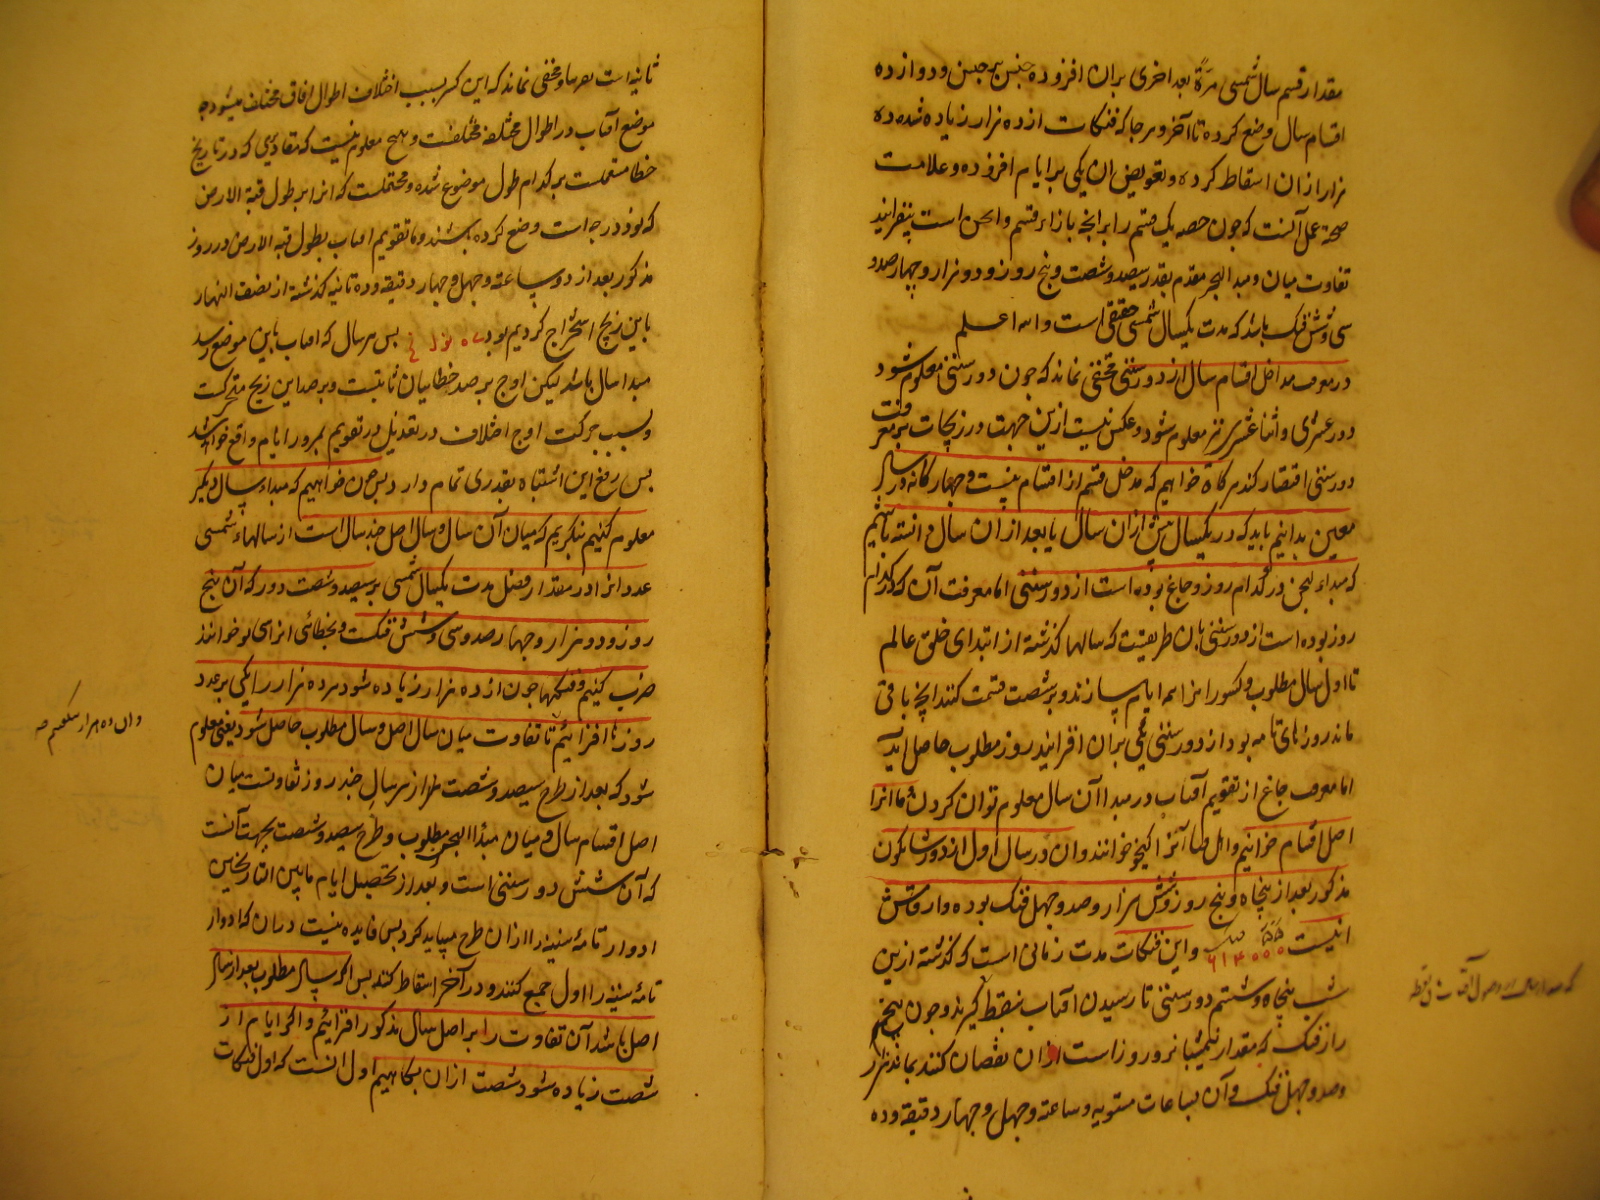 مقدار قسم سال شمسی مرّة بعد اخری بران افزوده جنس بر جنس و دوازده
اقسام سال وضع کرده تا آخر و هر جا که فنکات از ده هزار زیاده شده ده
هزار ازان اسقاط کرده و بعویض ان یکی بر ایام افزوده و علامت
صحة عمل آنست که چون حصه یک قسم را بر انچه بازاء قسم و است بیفزایند
تفاوت میان و مبدا مقدم بقدر سیصد و شصت و پنج روز و دو هزار و چهارصد و
سی و شش فنک باشد که مدت یکسال شمسی حقیقی است والله اعلم
در معرفت مداخل اقسام سال از دور ستینی مخفی نماند که چون دور ستینی معلوم شود
دور عشری و اثنا عشری نیز معلوم شود و عکس نیست ازین جهت در زیجات بر معرفت
دور ستینی اقتصار کنند هرگاه خواهیم که مدخل قسم از اقسام بیست و چهارگانه در سال
معین بدانیم باید که در یکسال پیش ازان سال یا بعد ازان سال دانسته باشیم
که مبداء در کدام روز و چاغ بوده است از دور ستینی اما معرفت آن که در کدام
روز بوده است از دور ستینی بان طریقست که سالها گذشته از ابتدای خلق عالم
تا اول سال مطلوب و کسور انرا همه ایام سازند و بر شصت قسمت کنند انچه باقی
ماند روزهای تامه بود از دور ستینی یکی بران افزایند روز مطلوب حاصل اید
اما معرفت چاغ از تقویم آفتاب در مبدا آن سال معلوم توان کردن ما انرا
اصل اقسام خوانیم و اهل خطا آنرا خوانند و ان در سال اول از دور
مذکور بعد از پنجاه و پنج روز و شش هزار و صد و چهل فنک بوده و ارقامش
اینست و این فنکات مدت زمانی است که گذشته ازین
شب پنجاه و ششم دور ستینی تا رسیدن آفتاب بنقطه و چون پنجهزار
را از فنک که مقدار نیمشبانروز است ازان نقصان کنند بماند هزار
و صد و چهل فنک و آن بساعات مستویه دو ساعته و چهل و چهار دقیقه و ده
ثانیه است و مخفی نماند که این کسر بسبب اختلاف اطوال افاق مختلف میشود چه
موضع آفتاب در اطوال مختلفه مختلفست و هیچ معلوم نیست که مقادیری که در تاریخ
خطا مستعملست بر کدام طول موضوع شده و محتملست که انرا بر طول قبة الارض
که نود درجه است وضع کرده باشند و ما تقویم افتاب بطول قبة الارض در روز
مذکور بعد از دو ساعته و چهل و چهار دقیقه و ده ثانیه گذشته از نصف النهار
باین زیج استخراج کردیم بود پس هر سال که افتاب باین موضع رسد
مبدا سال باشد لیکن اوج برصد خطائیان ثابتست و برصد این زیج متحرکست
و بسبب حرکت اوج اختلاف در تعدیل در تقویم بمرور ایام واقع خواهد شد
پس رفع این اشتباه بقدری تمام دارد پس چون خواهیم که مبداء سال دیگر
معلوم کنیم بنگریم که میان آن سال و سال اصل چند سال است از سالهاء شمسی
عدد انرا در مقدار فضل مدت یکسال شمسی بر سیصد و شصت دور که آن پنج
روز و دو هزار و چهارصد و سی و شش فنکست و بخطائی انرا خوانند
ضرب کنیم و فنکها چون از ده هزار زیاده شود هر ده هزار را یکی بر عدد
روزها افزائیم تا تفاوت میان سال اصل و سال مطلوب حاصل شود یعنی معلوم
شود که بعد از طرح سیصد و شصت از هر سال چند روز تفاوتست میان
اصل اقسام سال و میان مبدا مطلوب و طرح سیصد و شصت بجهت آنست
که آن شش دور ستینی است و بعد از تحصیل ایام مابین التاریخین
ادوار تامهٔ ستینی را ازان طرح میباید کرد پس فایده نیست دران که ادوار
تامهٔ ستینی را اول جمع کنند و در آخر اسقاط کنند پس اگر سال مطلوب بعد از سال
اصل باشد آن تفاوت را بر اصل سال مذکور افزائیم و اگر ایام از
شصت زیاده شود شصت ازان بکاهیم اول انست که اول فنکات